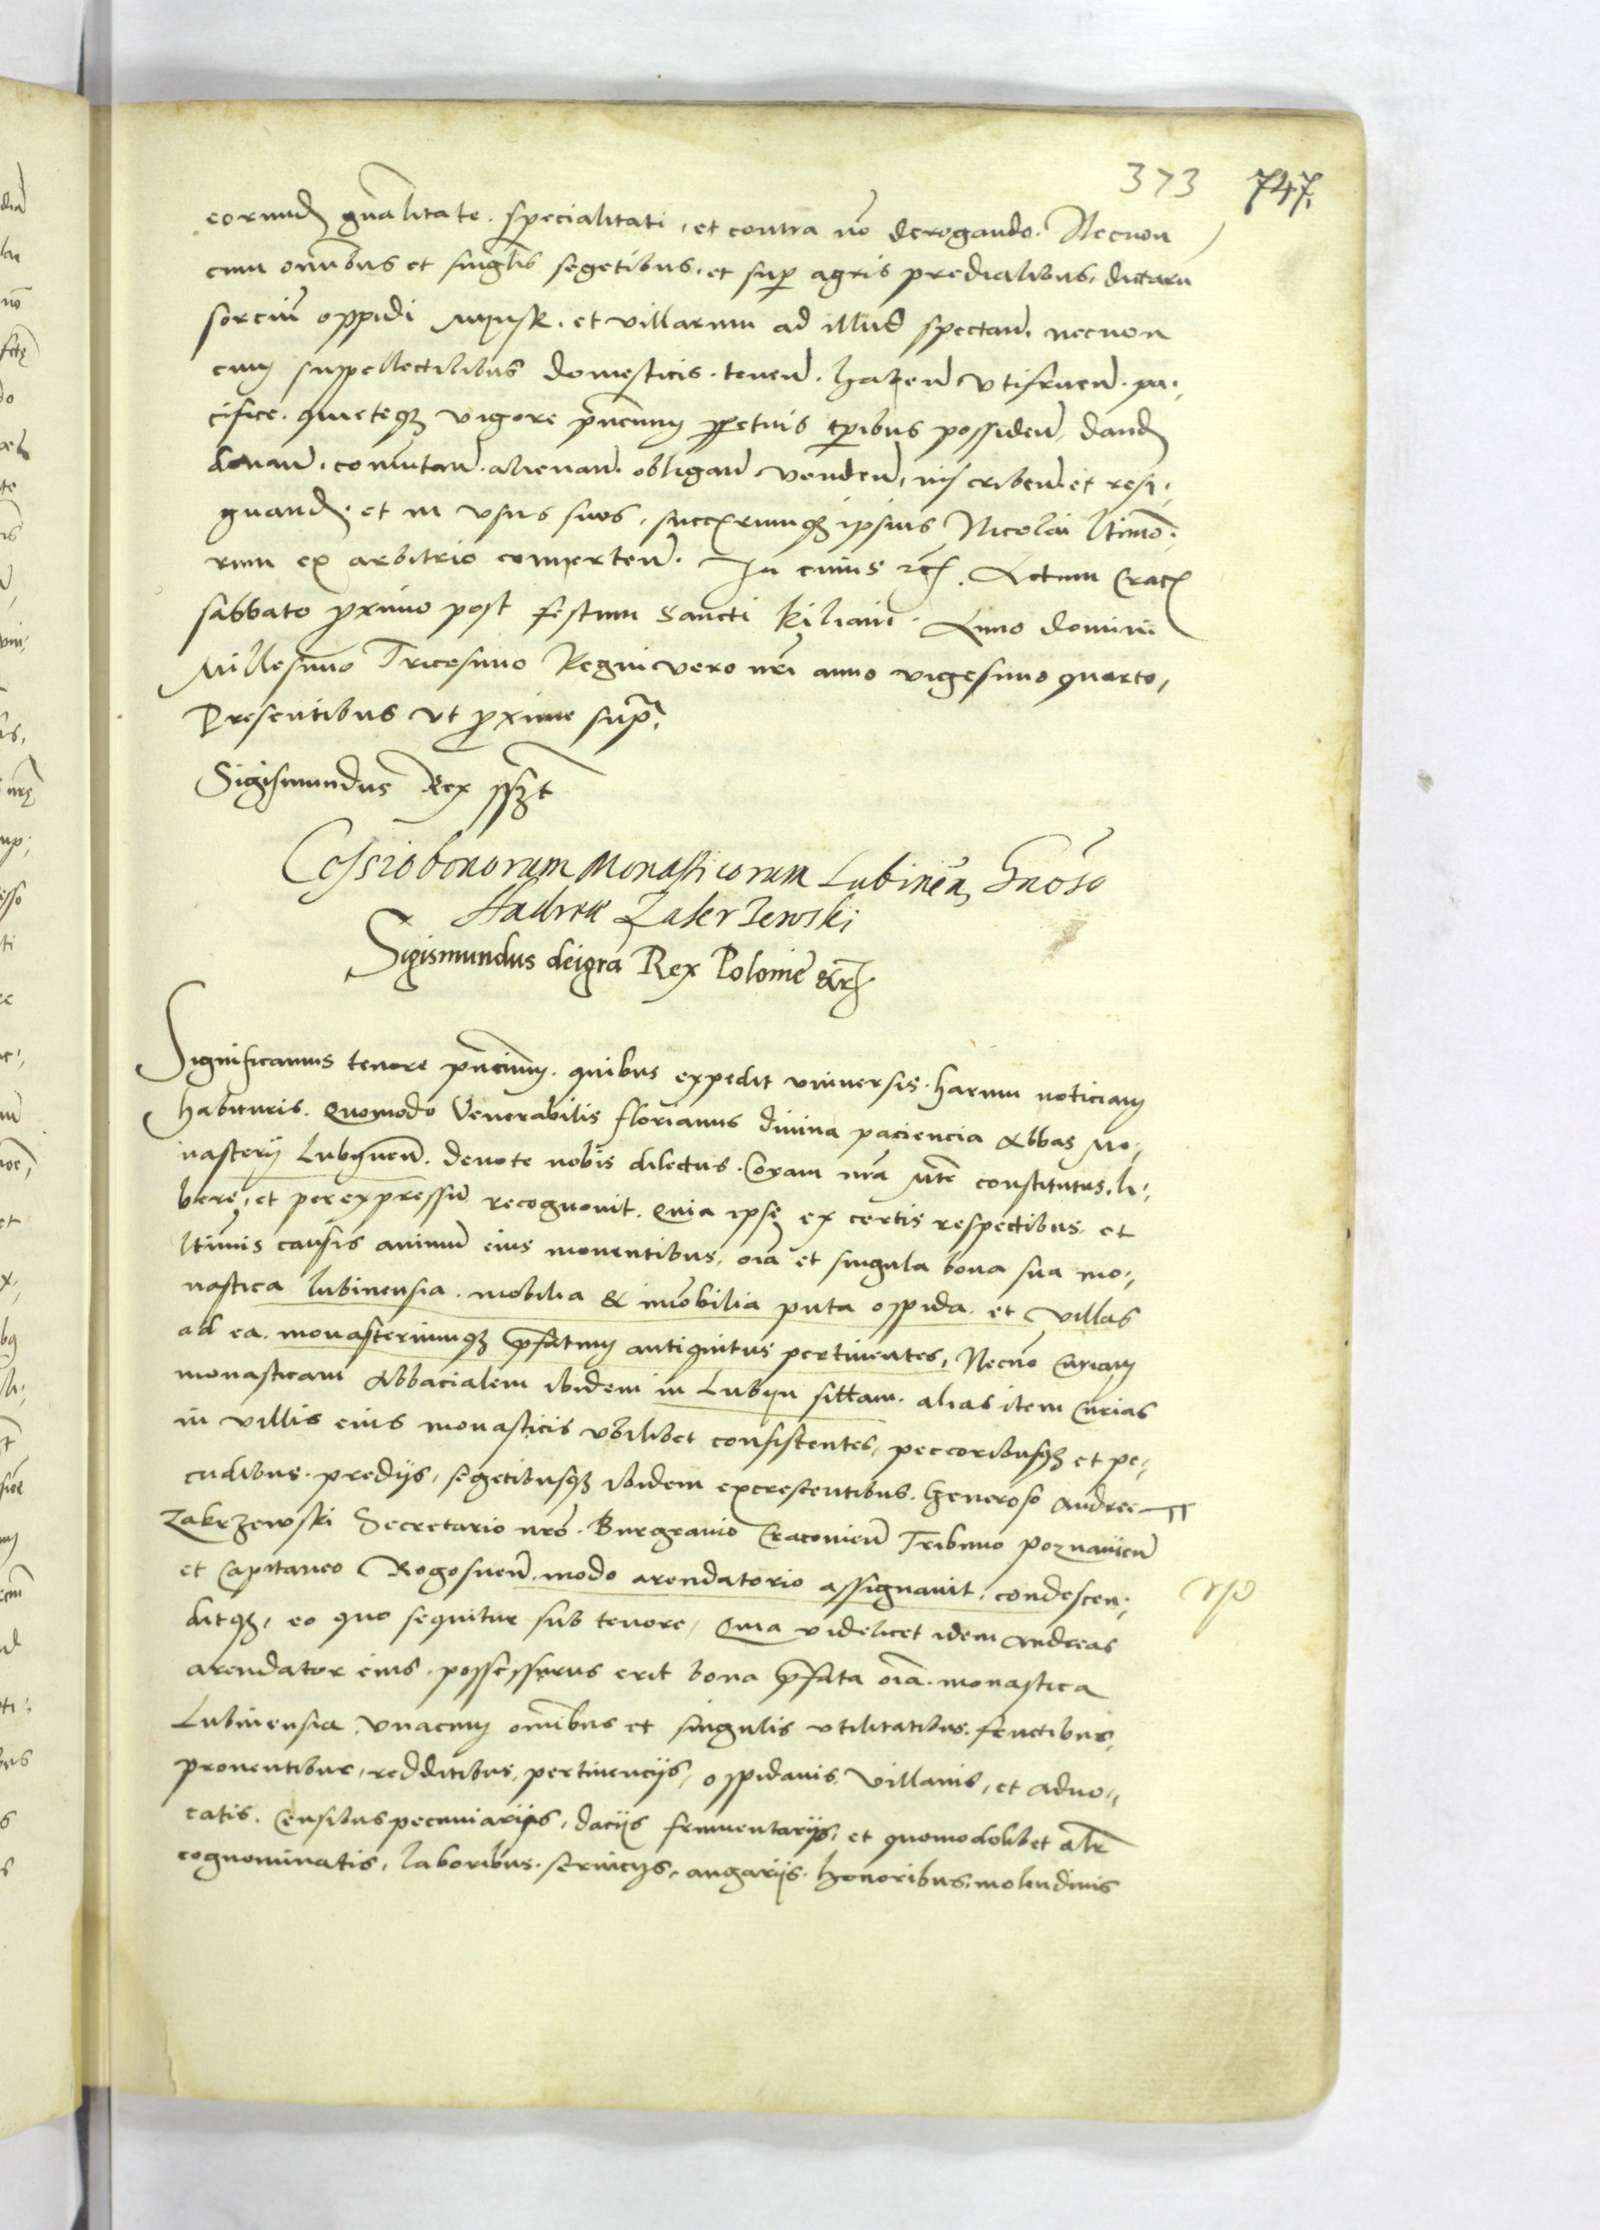 373 747.
eorumd gnalitate. specialitati, et contra no derogando. Necnon
cum omnibus et singlis segetibus, et sup agris predialibus, dictaru
sorciu oppidi Mynsk. et villarum ad illud spectan. necnon
cum suppellectilibus domesticis. tenen. haben vtifruen. pa,
cifice. quieteq vigore pncium ppetuis tpibus possiden, dand
donan. comutan. alienan. obligan venden, inscriben et resi,
gnand. et in vsus suos, succrumq ipsius Nicolai ltimo,
rum ex arbitrio converten. In cuius rei. Actum Crac
sabbato pximo post festum Sancti kiliani. Anno domini
Millesimo Tricesimo Regni vero nri anno vigesimo quarto,
Presentibus vt pxime supra.
Sigismundus Rex sszt
Cessio bonorum Monasticorum Lubinen, Gnoso
Andree Zakrzewski
Sigismundus dei gra Rex Polonie &c
Significamus tenore pncium. quibus expedit vniuersis. harum noticiam
habituris. Quomodo Venerabilis florianus diuina paciencia Abbas Mo,
nasterij Lubynen. deuote nobis dilectus. Coram nra Mte constitutus, li,
bere, et per expressum recognouit. Quia ipse ex certis respectibus, et
ltimis causis animu eius mouentibus, oia et singula bona sua mo,
nastica lubinensia. mobilia & imobilia puta oppida. et villas
ad ea. monasteriumq pfatum antiquitus pertinentes, Necno Curiam
monasticam Abbacialem ibidem in Lubyn sittam. alias item Curias
in villis eius monasticis vbilibet consistentes, peccoribusq et pe,
cudibus. predijs, segetibusq ibidem excrescentibus. Generoso Andree
Zakrzewski Secretario nro. Burgrauio Cracouien Tribuno Poznanien
et Capitaneo Rogosnen. modo arendatorio assignauit, condescen,
ditq, eo quo sequitur sub tenore, Quia videlicet idem Andreas
arendator eius. possessurus erit bona pfata oia. monastica
Lubinensia, vnacum omnibus et singulis vtilitatibus, fructibus,
prouentibus, redditibus, pertinencijs, oppidanis, villanis, et aduo,
catis. Censibus pecuniarijs, dacijs frumentarijs, et quomodolibet alr
cognominatis, laboribus. seruicijs, angarijs. honoribus, molendinis